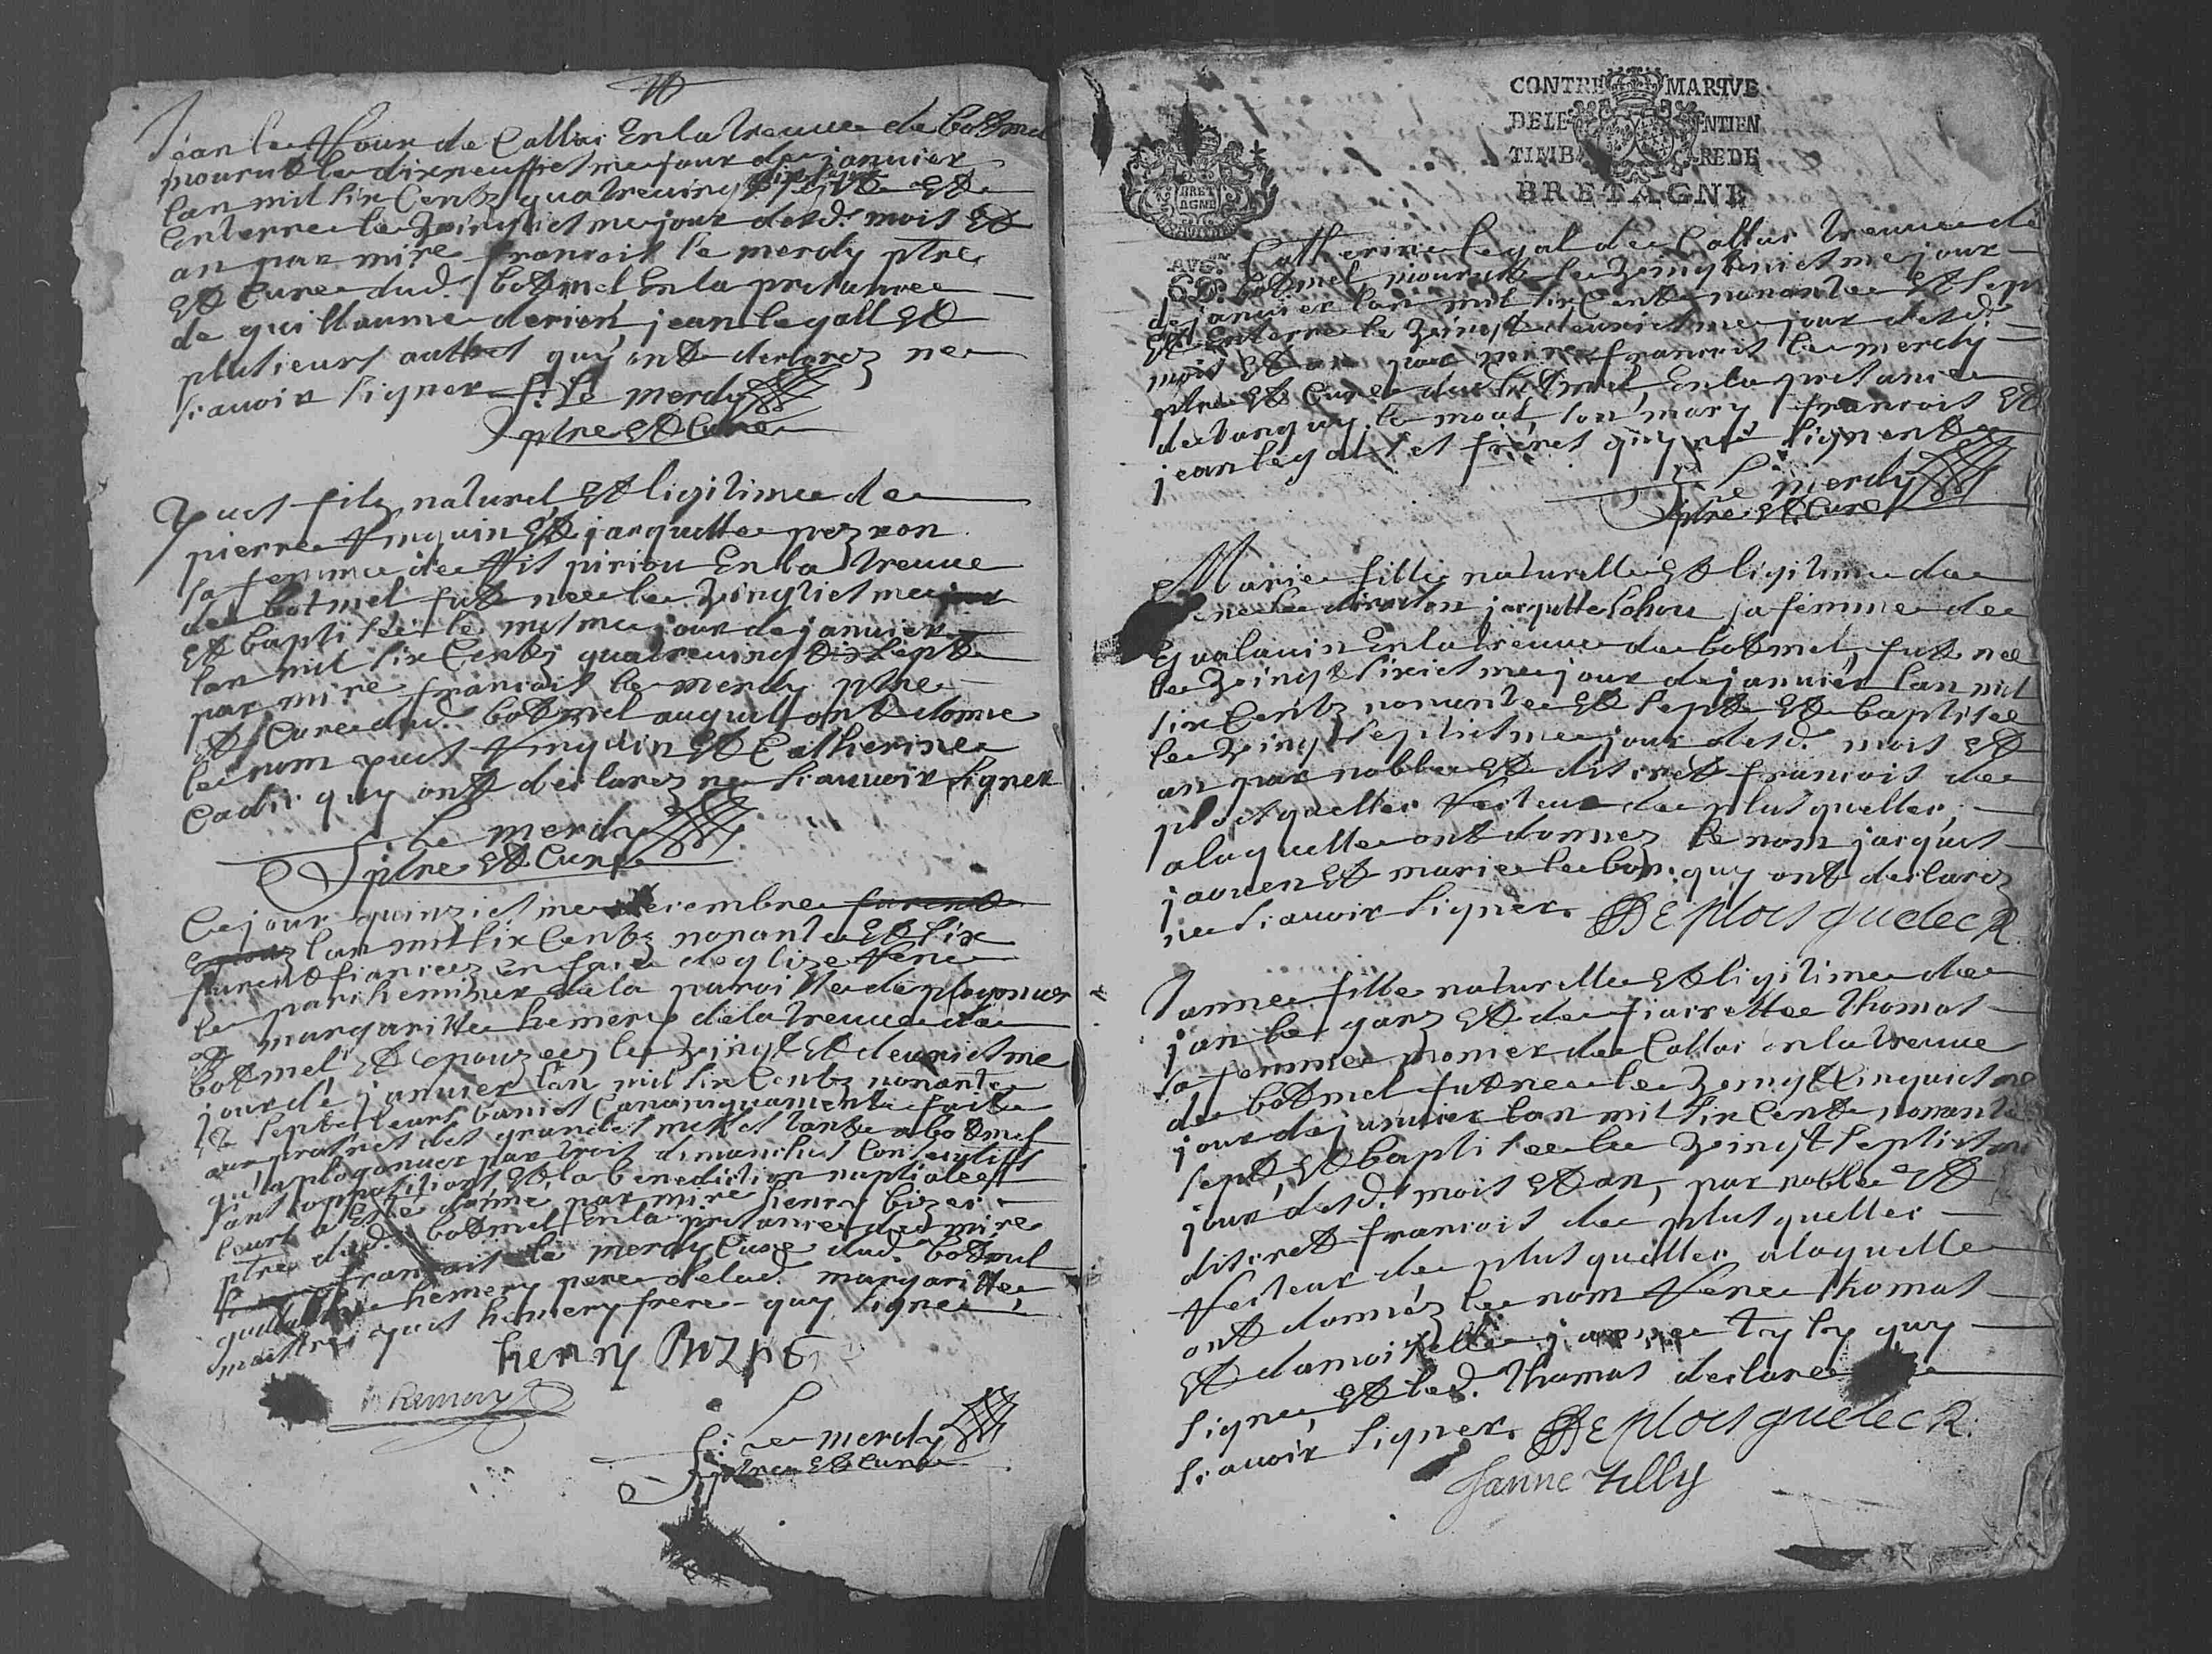 Jean le ffour de Callac En la treuve de botmel
mourut le dixneuffiesme jour de janvier
lan mil six Centz quatrevingt dix sept Et
Enterre le Vingtiesme jour desd. mois Et
an par mire francois le merdy ptre
Et Cure dud. botmel En la presance
de guillaume derien, jean le gall Et
plusieurs autres quy ont declarez ne
scavoir signer f: Le merdy
ptre Et Cure
yves filz naturel, Et ligitime de
pierre Jnquin Et jacquette pezron
sa femme de piriou En la treuve
de botmel fut nee le Vingtiesme
Et baptisee le mesme jour de janvier
lan mil six Centz quatrevingt dix sept
par mire francois le merdy ptre
Et Cure dud. botmel auquel ont donne
le nom yves Jnquin Et Catherine
Cadic quy ont declarez ne scauvoir signer
f: Le merdy
ptre Et Cure
Ce jour quinziesme decembre furent
lan mil six Centz nonante Et six
furent fiancez En face deglize Rene
le parcheminer de la paroisse de plogonver
Et margaritte hemery de la treuve de
botmel Et Epouzeez le Vingt Et deuxiesme
jour de janvier lan mil six Centz nonante
Et sept leurs banies Canoniquement faite
aux prosnes des grandes messes tant a botmel
qu'a plogonver par trois dimanches Consecutiffs
sans oppositions Et la benediction nuptialle
leurs a Esté donne par mire henry bizec
ptre dud. botmel En la presance dud mire
francois le merdy Cure dud botmel
guillaume hemery pere de lad. margaritte
maistre yves hemery frere quy signe
henry Bizec
hemery
f: Le merdy
ptre Et Cure
CONTRE MARQVE
DELE NTIEN
TIMB RE DE
BRETAGNE
BRET
AGNE
Catherine le gal de Callac treuve de
botmel, mourut le Vingt uniesme jour
de janvier lan mil six Centz nonante Et sept
Et Enterre le Vingt deuxiesme jour desd.
mois Et an par mire francois le merdy
ptre Et Cure dud botmel, En la presance
de tanguy le moal, son mary francois Et
jean le gal ses freres quy ne signent
f: Le merdy
ptre Et Cure
Marie fille naturelle Et ligitime de
jacquette Lohou sa femme de
Gualavin En la treuve de botmel, fut nee
le Vingt sixiesme jour de janvier lan mil
six Centz nonante Et sept Et baptisee
le Vingt septiesme jour desd. mois Et
an par noble Et discret francois de
ploesquellec Recteur de plusquellec,
alaquelle ont donnez le nom jacques
jaouen Et marie le bon. quy ont declarez
ne scavoir signer. DE ploesquelecR
Janne fille naturelle Et ligitime de
jan le garz Et de fiacrette thomas
sa femme monier de Callac en la treuve
de botmel fut nee le Vingt Cinquiesme
jour de janvier lan mil six Centz nonante
sept, Et baptisee le Vingt septiesme
jour desd. mois Et an, par noble Et
discret francois de plusquellec
Recteur de plusquellec alaquelle
ont donnéz le nom Rene thomas
Et damoiselle janne tyly quy
signe, Et led. thomas declare ne
scavoir signer. DE ploesquelecR.
Janne tilly